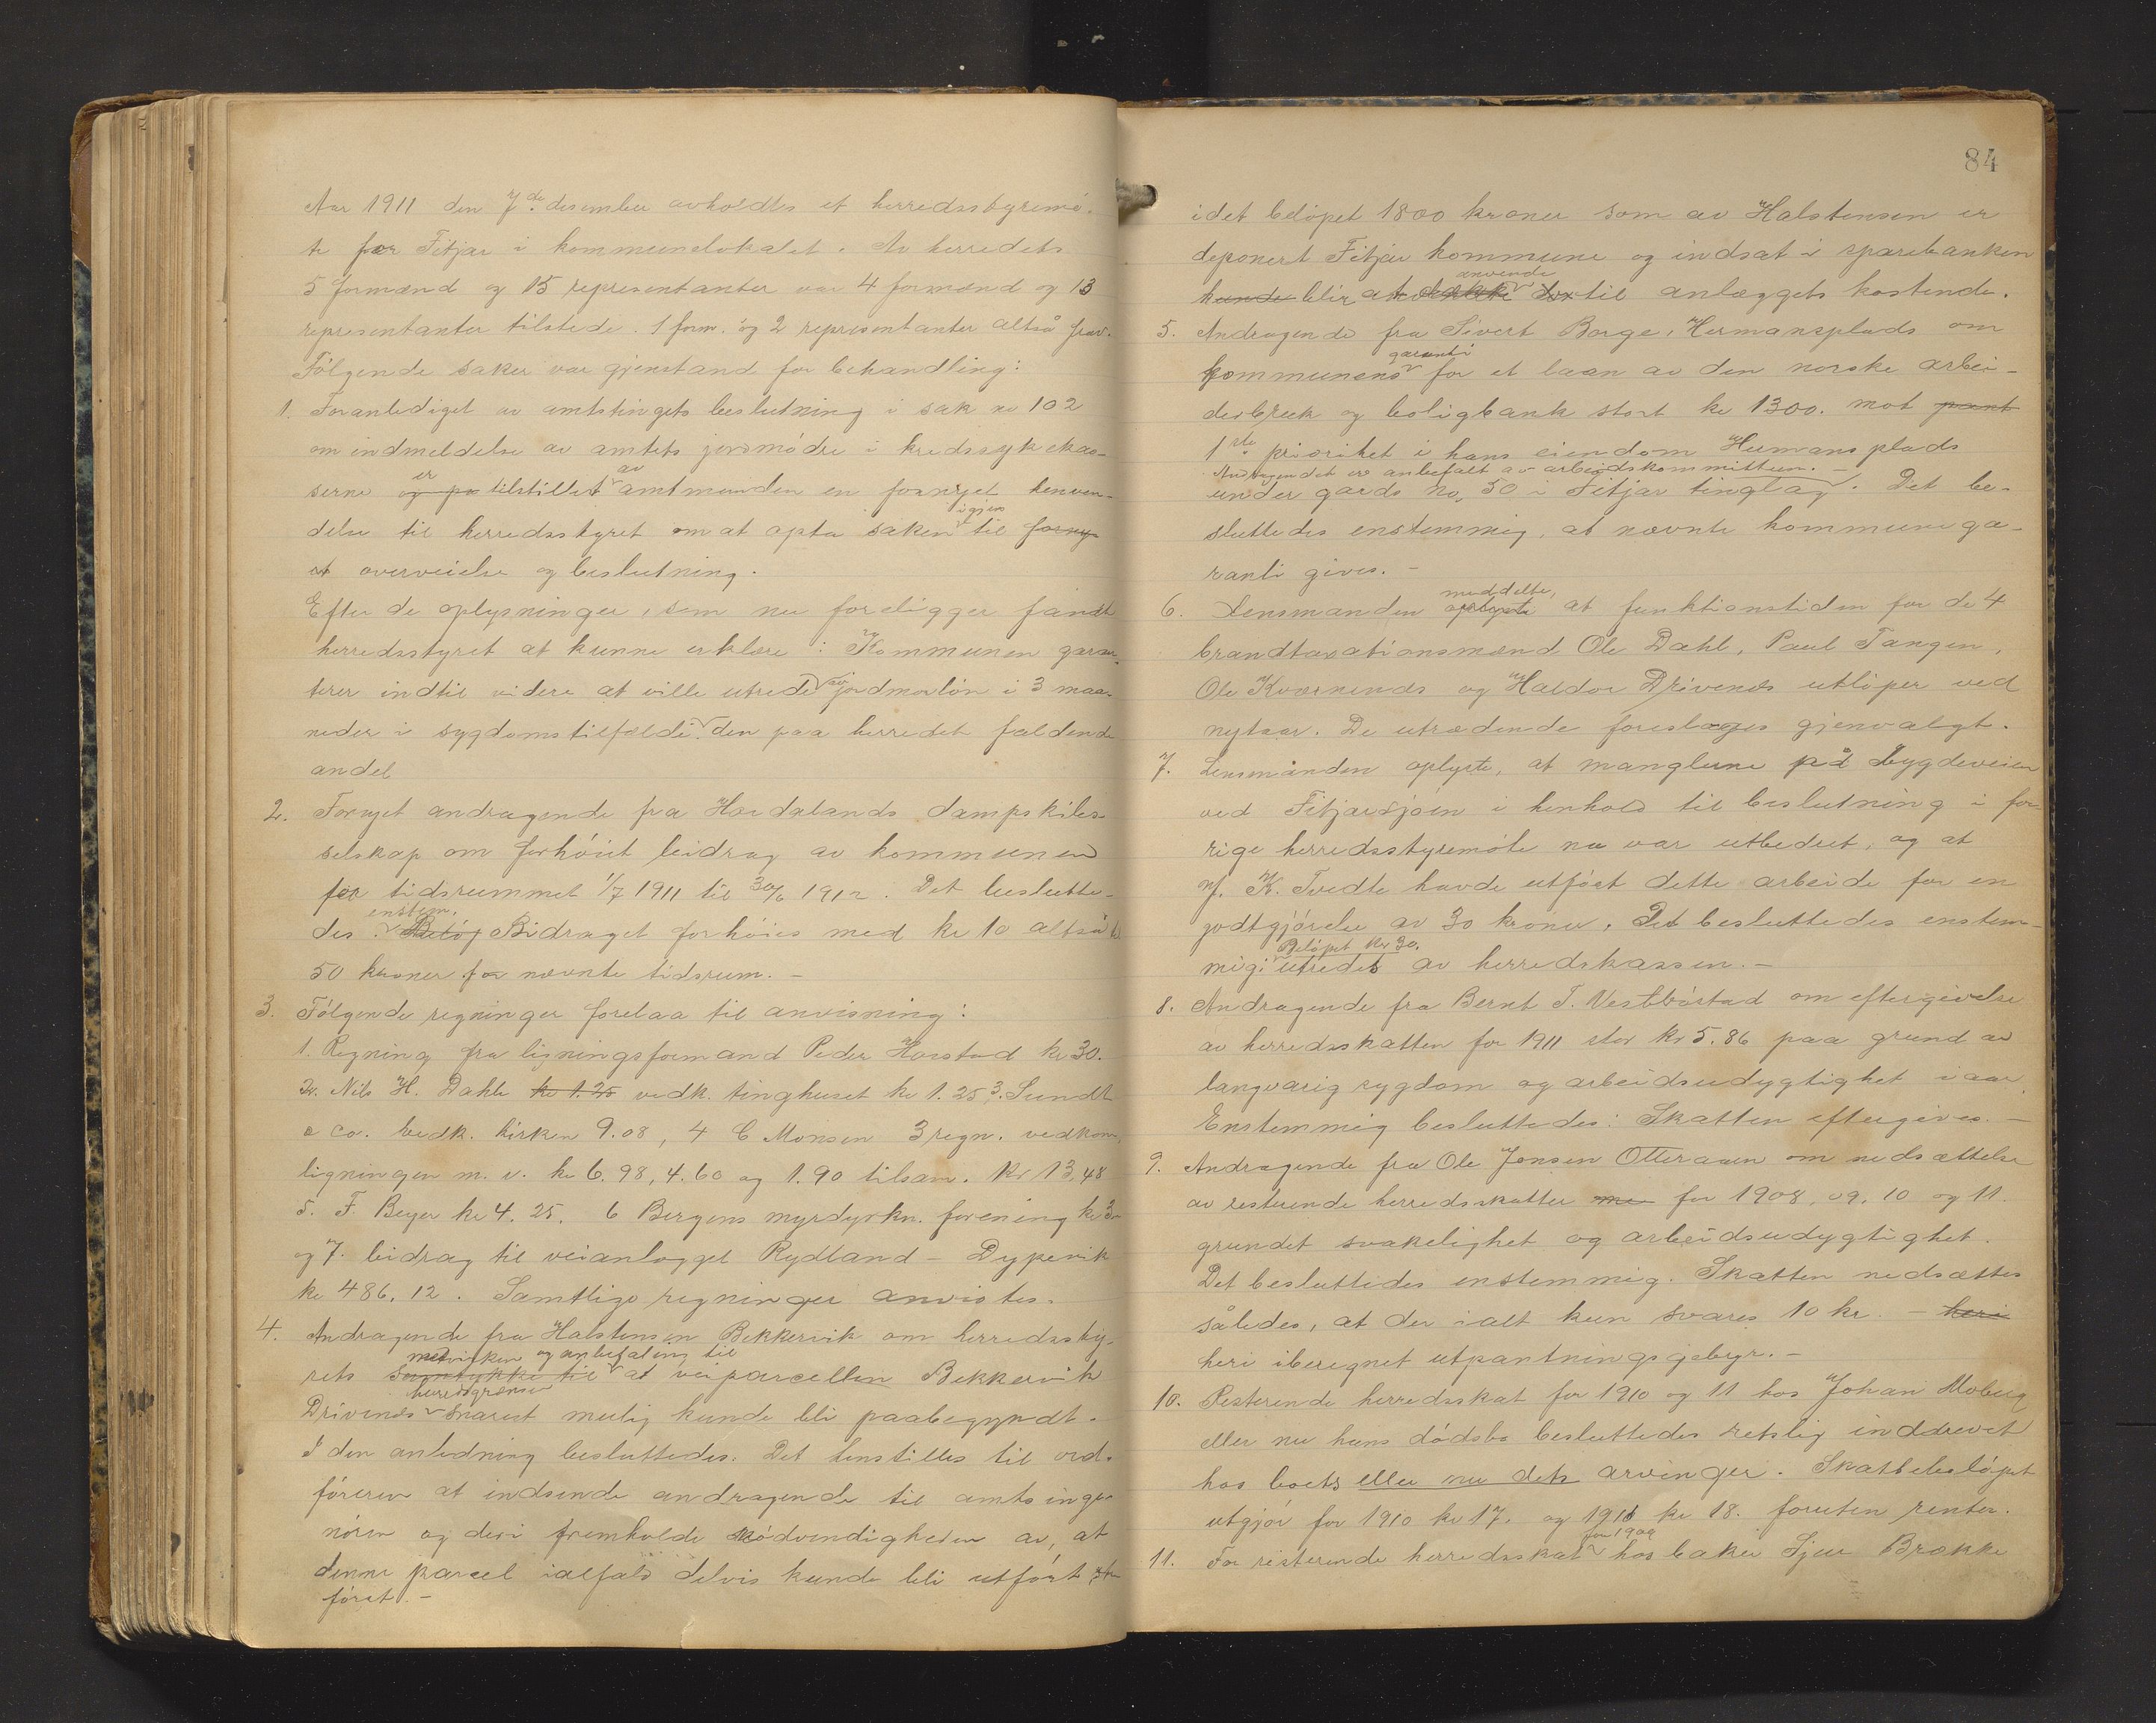 Aar 1911 den 7de desember avholdtes et herredsstyremø-
te for Fitjar i kommunelokalet. Av herredets
5 formænd og 15 representanter var 4 formænd og 13
representanter tilstede. 1 form. og 2 representanter altså frav.
Følgende saker var gjenstand for behandling:
1. Foranlediget av amtstingets beslutning i sak no 102
om indmeldelse av amtets jordmødre i kredssykekas-
er av
serne og pa tilstillet amtmanden en fornyet henven-
igjen
delse til herredsstyret om at opta saken til forny-
et overveielse og beslutning.
Efter de oplysninger, som nu foreligger fandt
herredsstyret at kunne erklære: Kommunen garan-
terer indtil videre at ville utrede av jordmorløn i 3 maa-
neder i sygdomstilfælde den paa herredet faldende
andel
2. Fornyet andragende fra Hordalands dampskibs-
selskap om forhøiet bidrag av kommunen
for tidsrummet 1/7 1911 til 30/6 1912. Det beslutte-
enstem.
des Beløp Bidraget forhøies med kr 10 altså til
50 kroner for nævnte tidsrum. –
3. Følgende regninger forelaa til anvisning:
1. Regning fra ligningsformand Peder Havstad kr 30.
2. Nils H. Dahle kr 1.25 vedk. tinghuset kr 1.25 3. Sundt
& co. vedk. kirken 9.08, 4 C Monsen 3 regn. vedkom.
ligningen m. v. kr 6.98, 4.60 og 1.90 tilsam. kr 13,48
5. F. Beyer kr 4.25. 6 Bergens myrdyrkn. forening kr 3-
og 7. bidrag til veianlægget Rydland – Dypevik
kr 486.12. Samtlige regninger anvistes.
4. Andragende fra Halstensen Bekkervik om herredssty-
medvirken og anbefaling til
rets samtykke til at veiparcellen Bekkervik
herredsgrænsen
Drivenes snarest mulig kunde bli paabegyndt.
I den anledning besluttedes: Det henstilles til ord-
føreren at indsende andragende til amtsinge-
niøren og deri fremholde nødvendigheden av, at
denne parcel ialfald delvis kunde bli utført
føret. –
84
idet beløpet 1800 kroner som av Halstensen er
deponert Fitjar kommune og indsat i sparebanken
anvende
kunde blir at dække til anlæggets kostende.
5. Andragende fra Sivert Borge, Hermansplads om
garanti
kommunens for et laan av den norske arbei-
derbruk og boligbank stort kr 1300. mot pant
1ste prioritet i hans eiendom Hermansplads
Andragendet er anbefalt av arbeidskommitteen. –
under gards no. 50 i Fitjar tinglag. Det be-
sluttedes enstemmig, at nævnte kommunega-
ranti gives. –
meddelte,
6. Lensmanden oplyste at funktionstiden for de 4
brandtaxationsmænd Ole Dahl, Paul Tangen,
Ole Kværnenes og Haldor Drivenes utløper ved
nytaar. De utrædende foreslages gjenvalgt.
7. Lensmanden oplyste, at manglerne på bygdeveien
ved Fitjarsjøen i henhold til beslutning i for-
rige herredsstyremøte nu var utbedret, og at
N. K. Tvedte havde utført dette arbeide for en
godtgjørelse av 30 kroner. Det besluttedes enstem-
Beløpet kr 30.
mig: utredes av herredskassen. –
8. Andragende fra Bernt T. Vestbøstad om eftergivelse
av herredsskatten for 1911 stor kr 5.86 paa grund av
langvarig sygdom og arbeidsudygtighet iaar
Enstemmig besluttedes: Skatten eftergives. –
9. Andragende fra Ole Jensen Otteraaen om nedsættelse
av resterende herredsskatter for 1908, 09, 10 og 11.
grundet svakelighet og arbeidsudygtighet.
Det besluttedes enstemmig. Skatten nedsættes
således, at der ialt kun svares 10 kr. – heri
heri iberegnet utpantningsgebyr. –
10. Resterende herredsskat for 1910 og 11 hos Johan Moberg
eller nu hans dødsbo besluttedes retslig inddrevet
hos boets eller nu dets arvinger. Skattebeløpet
utgjør for 1910 kr 17. og 1911 kr 18. foruten renter.
for 1909
11. For resterende herredsskat hos baker Sjur Brække